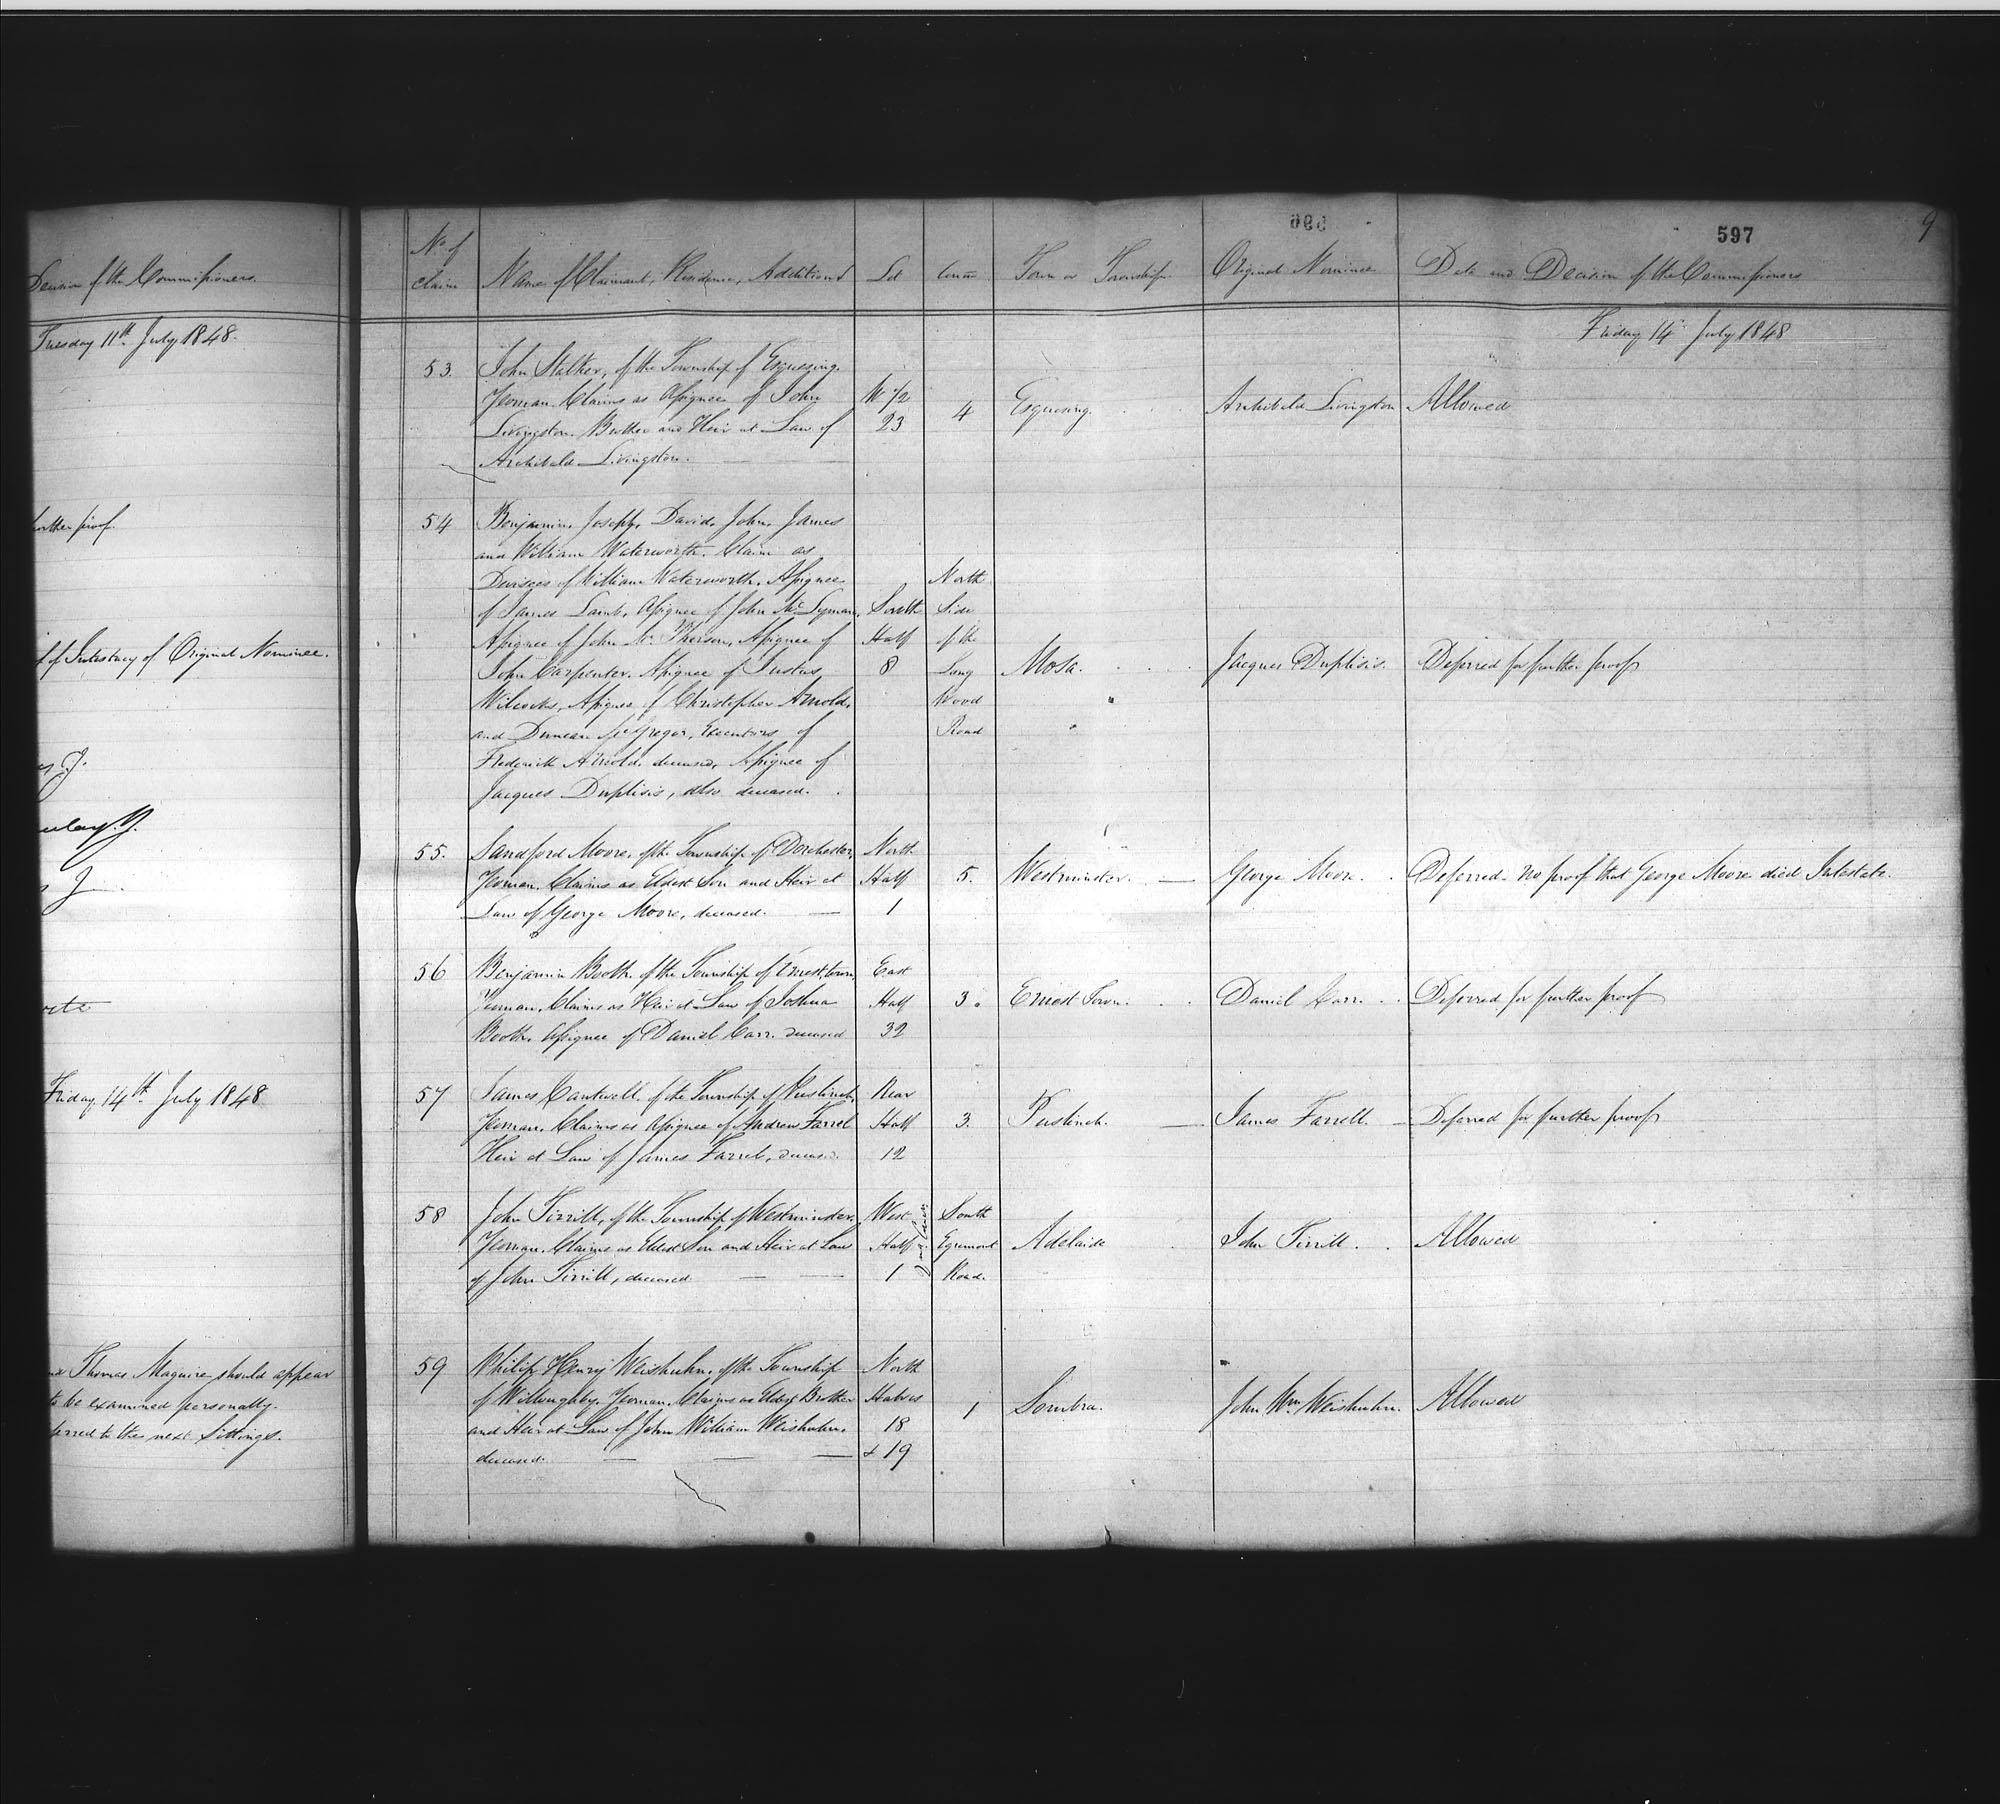 Decision of the Commissioners.
Tuesday 11th July 1848.
further proof.
of Intestacy of Original Nominee.
J.
J.
J
Friday 14th July 1848
Thomas Maguire should appear
to be examined personally.
to the next Sittings.
597
9
No of Claim
Name of Claimant, Residence, Additions
Lot
Town or Township
Original Nominee
Date and Decision of the Commissioners
Friday 14th July 1848
53.
John Stalker, of the Township of Esquesing.
Yeoman. Claims as Assignee of John
Livingston. Brother and Heir at Law of
Archibald Livingston.
W 1/2
23
4
Esquesing.
Archibald Livingston
Allowed
54
Benjamin, Joseph, David, John, James
and William Waterworth. Claim as
Devisees of William Waterworth. Assignee
of James Lamb, Assignee of John Mc Lyman,
Assignee of John Mc Pherson, Assignee of
John Carpenter. Assignee of Justus
Wilcocks, Assignee of Christopher Arnold,
and Duncan McGregor, Executors of
Frederick Arnold, deceased, Assignee of
Jacques Duplisis, also deceased.
South
Half
8
North
Side
of the
Long
Wood
Road
Mosa.
Jacques Duplisis.
Deferred for further proof
55.
Sandford Moore, of the Township of Dorchester,
Yeoman. Claims as Eldest Son and Heir at
Law of George Moore, deceased.
North
Half
1
5.
Westminster.
George Moore.
Deferred. no proof that George Moore died Intestate.
56
Benjamin Booth, of the Township of Ernest town,
Yeoman. Claims as Heir at Law of Joshua
Booth, Assignee of Daniel Carr. deceased
East
Half
32
3.
Ernest Town.
Daniel Carr.
Deferred for further proof
57
James Cantwell. of the Township of Puslinch,
Yeoman. Claims as Assignee of Andrew Farrel
Heir at Law of James Farrel, deceased.
Rear
Half
12
3.
Puslinch.
James Farrell.
Deferred for further proof
58
John Tirrill, of the Township of Westminster.
Yeoman. Claims as Eldest Son and Heir at Law
of John Tirrill, deceased
West
Half
1
South
Egremont
Road.
Adelaide
John Tirrill.
Allowed
59
Philip Henry Weishuhn, of the Township
of Willoughby. Yeoman. Claims as Eldest Brother
and Heir at Law of John William Weishuhn.
deceased.
North
Halves
18
& 19
1
Sombra.
John Wm Weishuhn.
Allowed